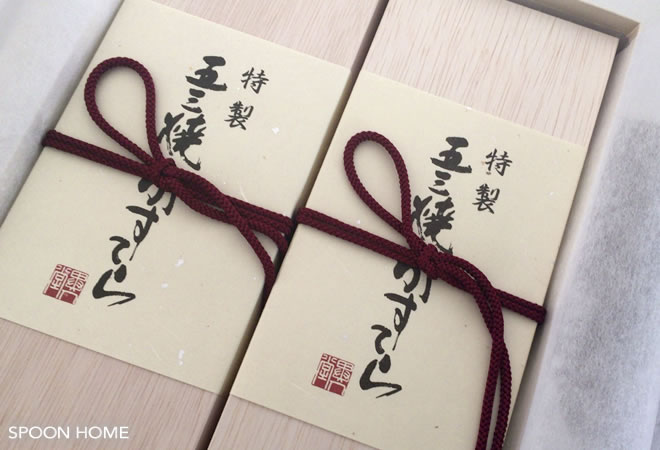 特製
五三焼かすてら
特製
五三焼かすてら
SPOON HOME